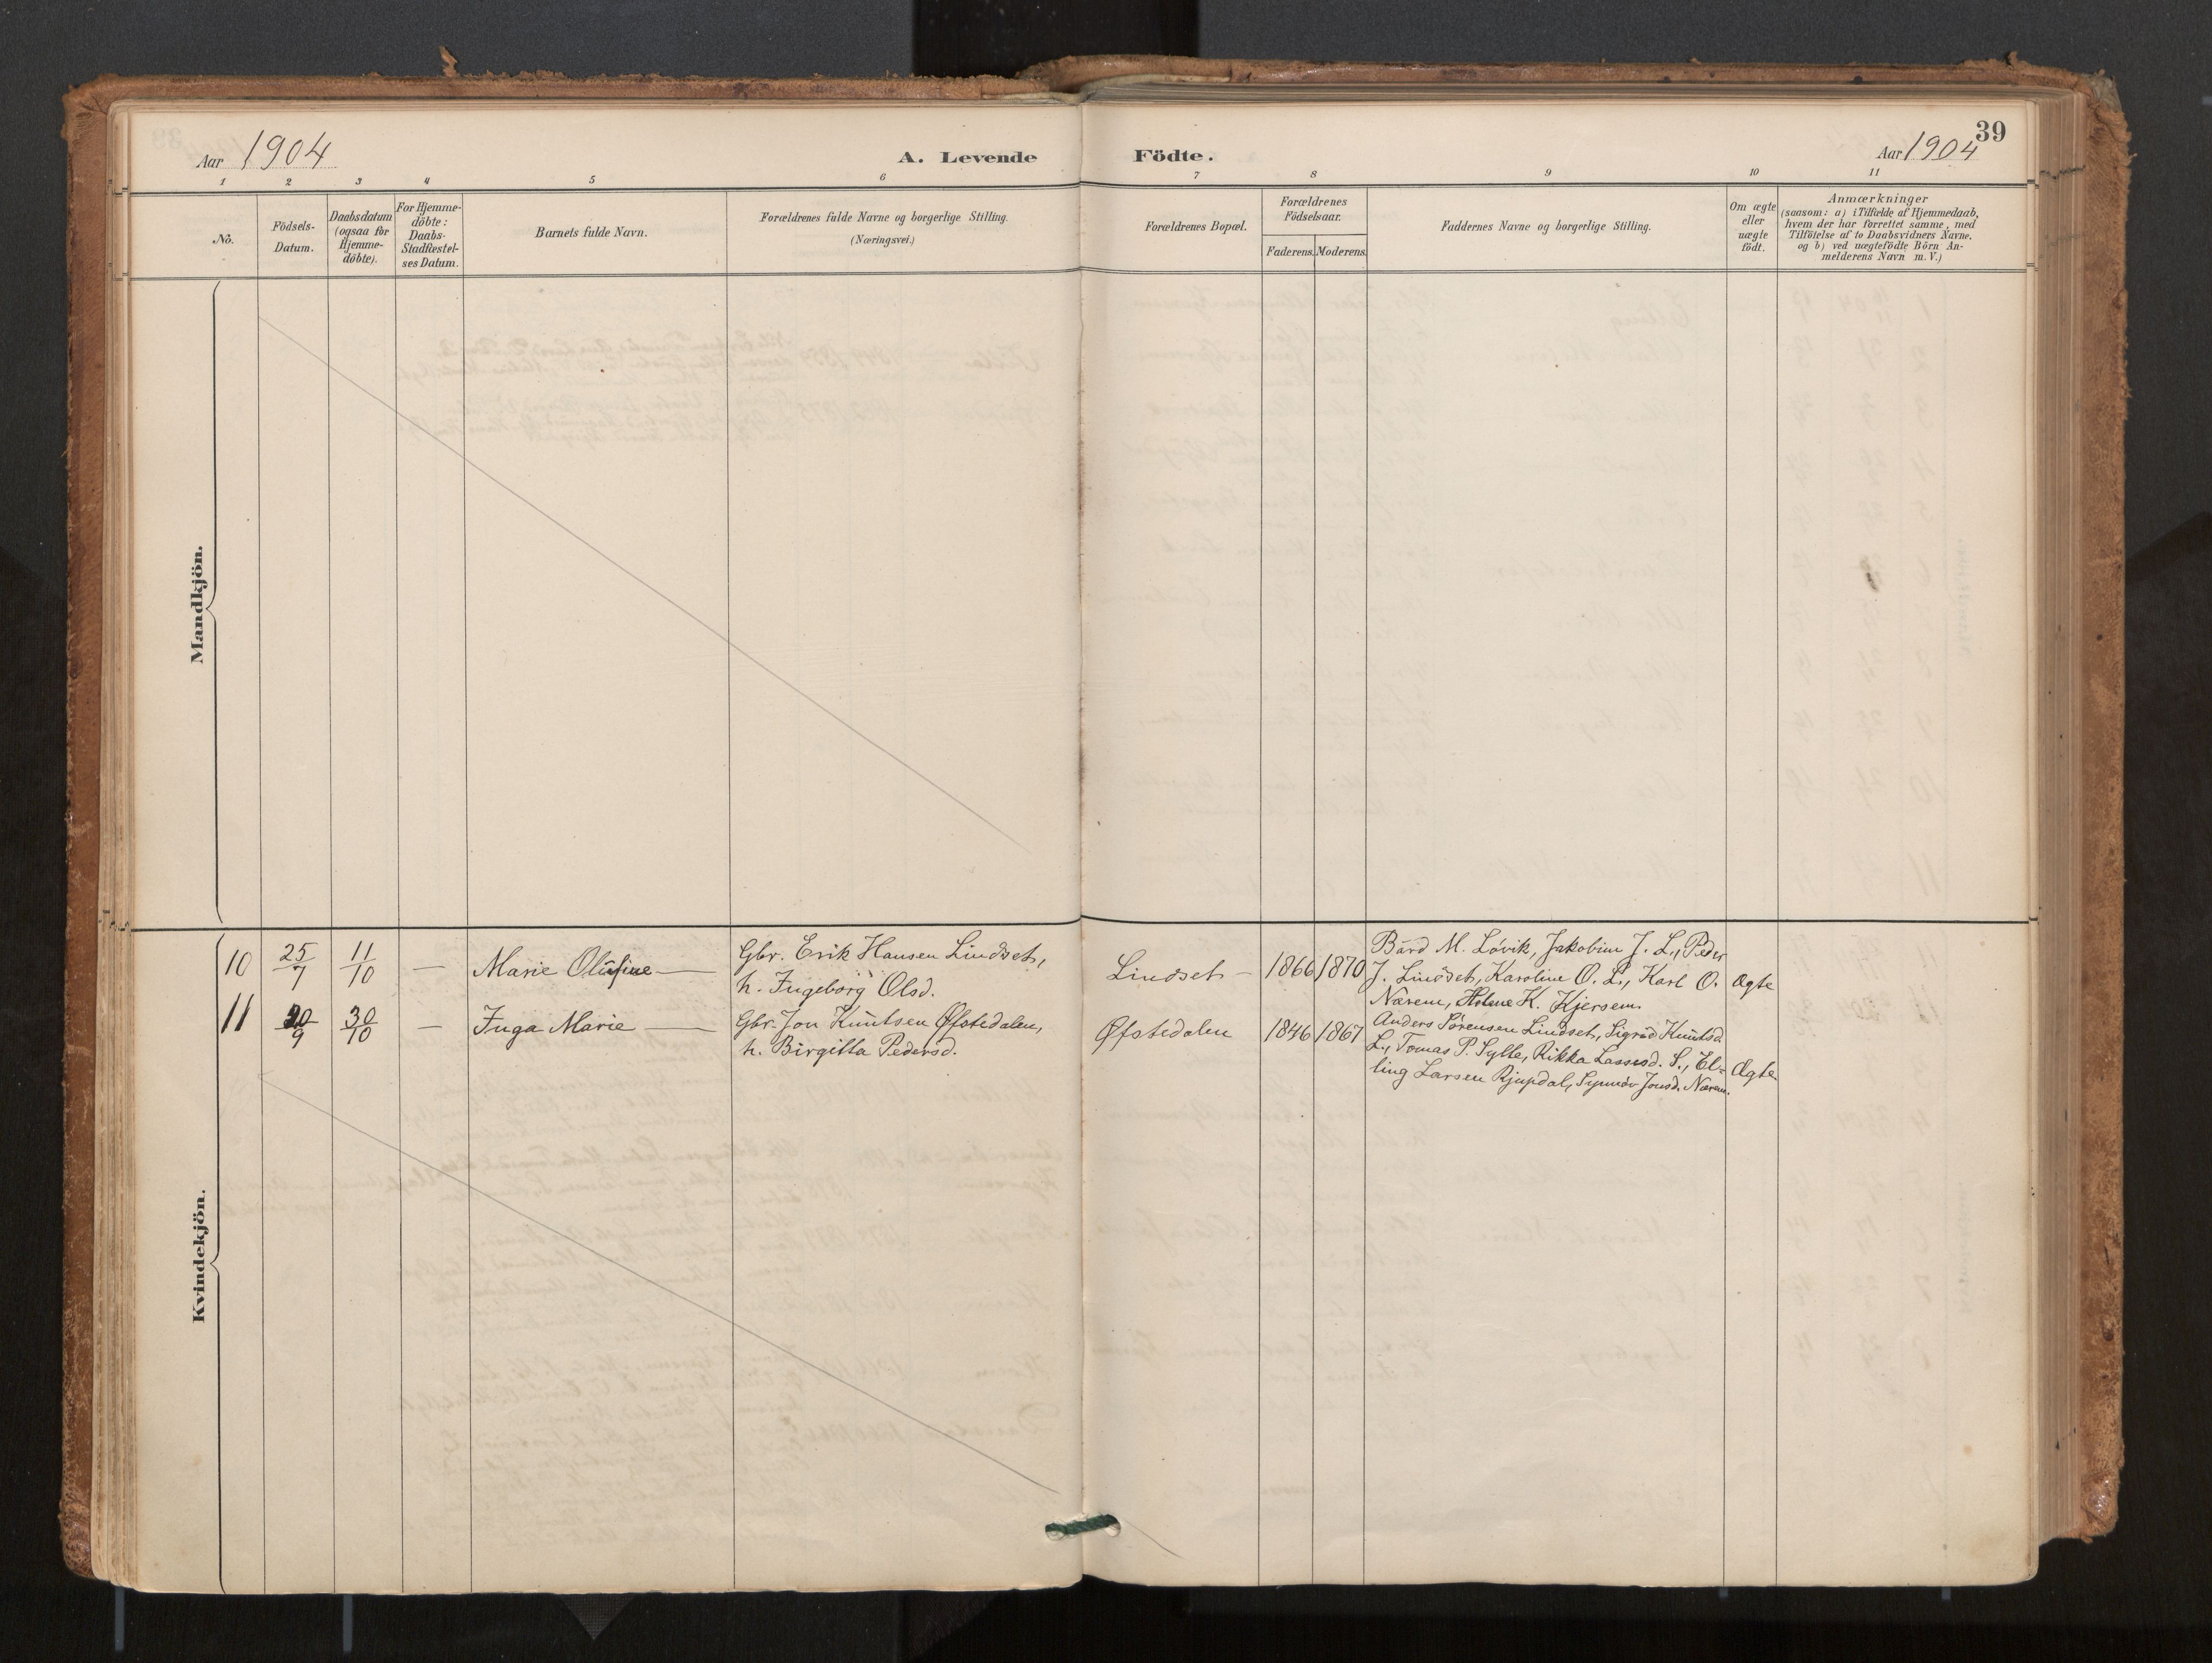 39
Aar 1904
A. Levende
Födte.
Aar 1904
1 2 3 4 5 6 7 8 9 10 11
No.
Födsels-
Datum.
Daabsdatum
(ogsaa for
Hjemme-
döbte).
For Hjemme-
döbte:
Daabs-
Stadfæstel-
ses Datum.
Barnets fulde Navn.
Forældrenes fulde Navne og borgerlige Stilling.
(Næringsvei.)
Forældrenes Bopæl.
Forældrenes
Födselsaar.
Faderens. Moderens.
Faddernes Navne og borgerlige Stilling.
Om ægte
eller
uægte
födt.
Anmærkninger
(saasom: a) i Tilfælde af Hjemmedaab,
hvem der har forrettet samme, med
Tilföielse af to Daabsvidners Navne,
og b) ved uægtefödte Börn An-
melderens Navn m.V.)
Mandkjön.
Kvindekjön.
10
25/7
11/10
—
Marie Olufine —
Gbr. Erik Hansen Lindset,
h. Ingeborg Olsd.
Lindset —
1866 1870
Bård M. Løvik, Jakobine J. L., Peder
J. Lindset, Karoline O. L., Karl O.
Nærem, Helene K. Kjersem.
Ægte
11
20/9
30/10
—
Inga Marie —
Gbr. Jon Knutsen Øfstedalen,
h. Birgitta Pedersd.
Øfstedalen
1846 1867
Anders Sørensen Lindset, Sigrid Knutsd.
L., Tomas P. Sylte, Rikka Lassesd. S., El-
ling Larsen Rjupdal, Synnøv Jonsd. Nærem.
Ægte